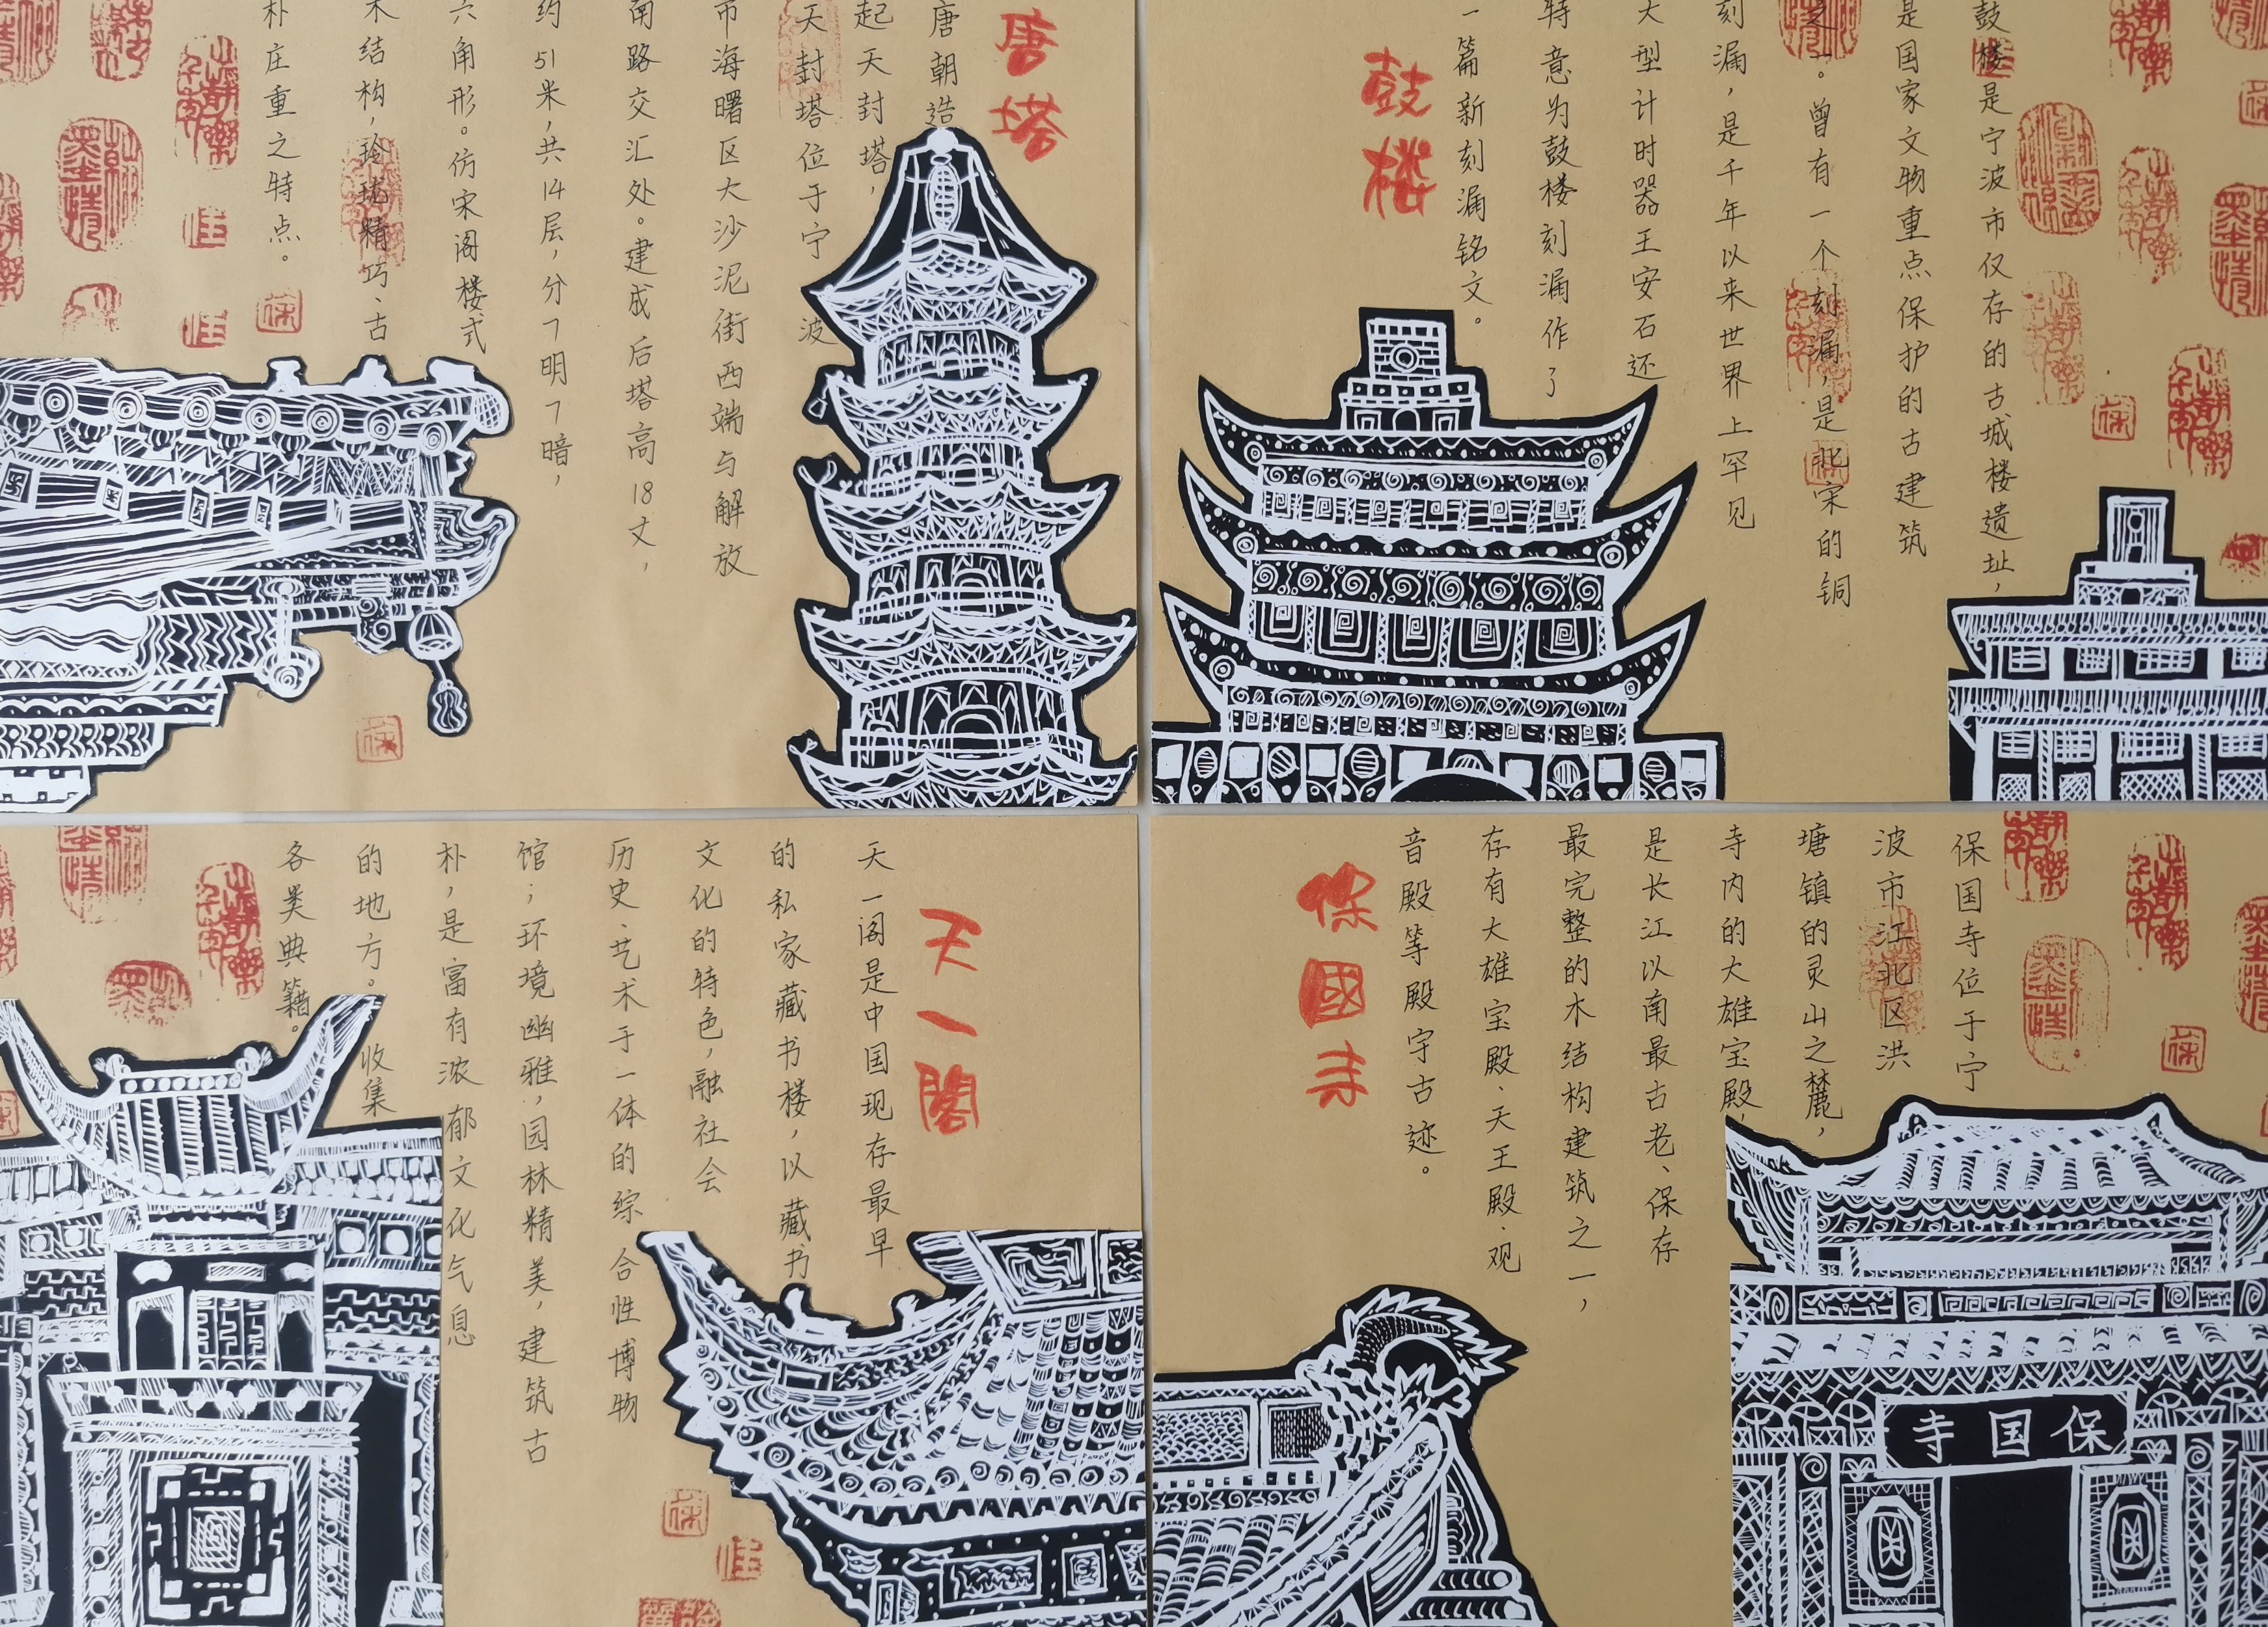 唐塔
唐朝造
起天封塔，
天封塔位于宁波
市海曙区大沙泥街西端与解放
南路交汇处。建成后塔高18丈，
约51米，共14层，分7明7暗，
六角形。仿宋阁楼式
木结构，玲珑精巧、古
朴庄重之特点。
鼓楼是宁波市仅存的古城楼遗址，
是国家文物重点保护的古建筑
之一。曾有一个刻漏，是北宋的铜
刻漏，是千年以来世界上罕见
大型计时器王安石还
特意为鼓楼刻漏作了
一篇新刻漏铭文。
鼓楼
天一閣
天一阁是中国现存最早
的私家藏书楼，以藏书
文化的特色，融社会
历史、艺术于一体的综合性博物
馆；环境幽雅，园林精美，建筑古
朴，是富有浓郁文化气息
的地方。收集
各类典籍。
保国寺位于宁
波市江北区洪
塘镇的灵山之麓，
寺内的大雄宝殿，
是长江以南最古老、保存
最完整的木结构建筑之一，
存有大雄宝殿、天王殿、观
音殿等殿宇古迹。
保國寺
保国寺